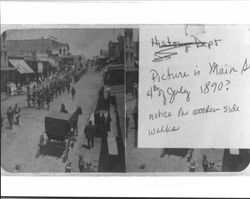 History Dept
Picture is Main S
4th of July 1890?
notice the wooden side
walks